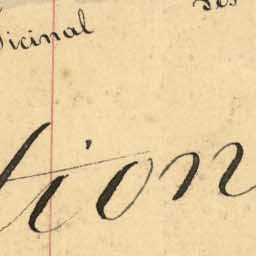 icinal
tion